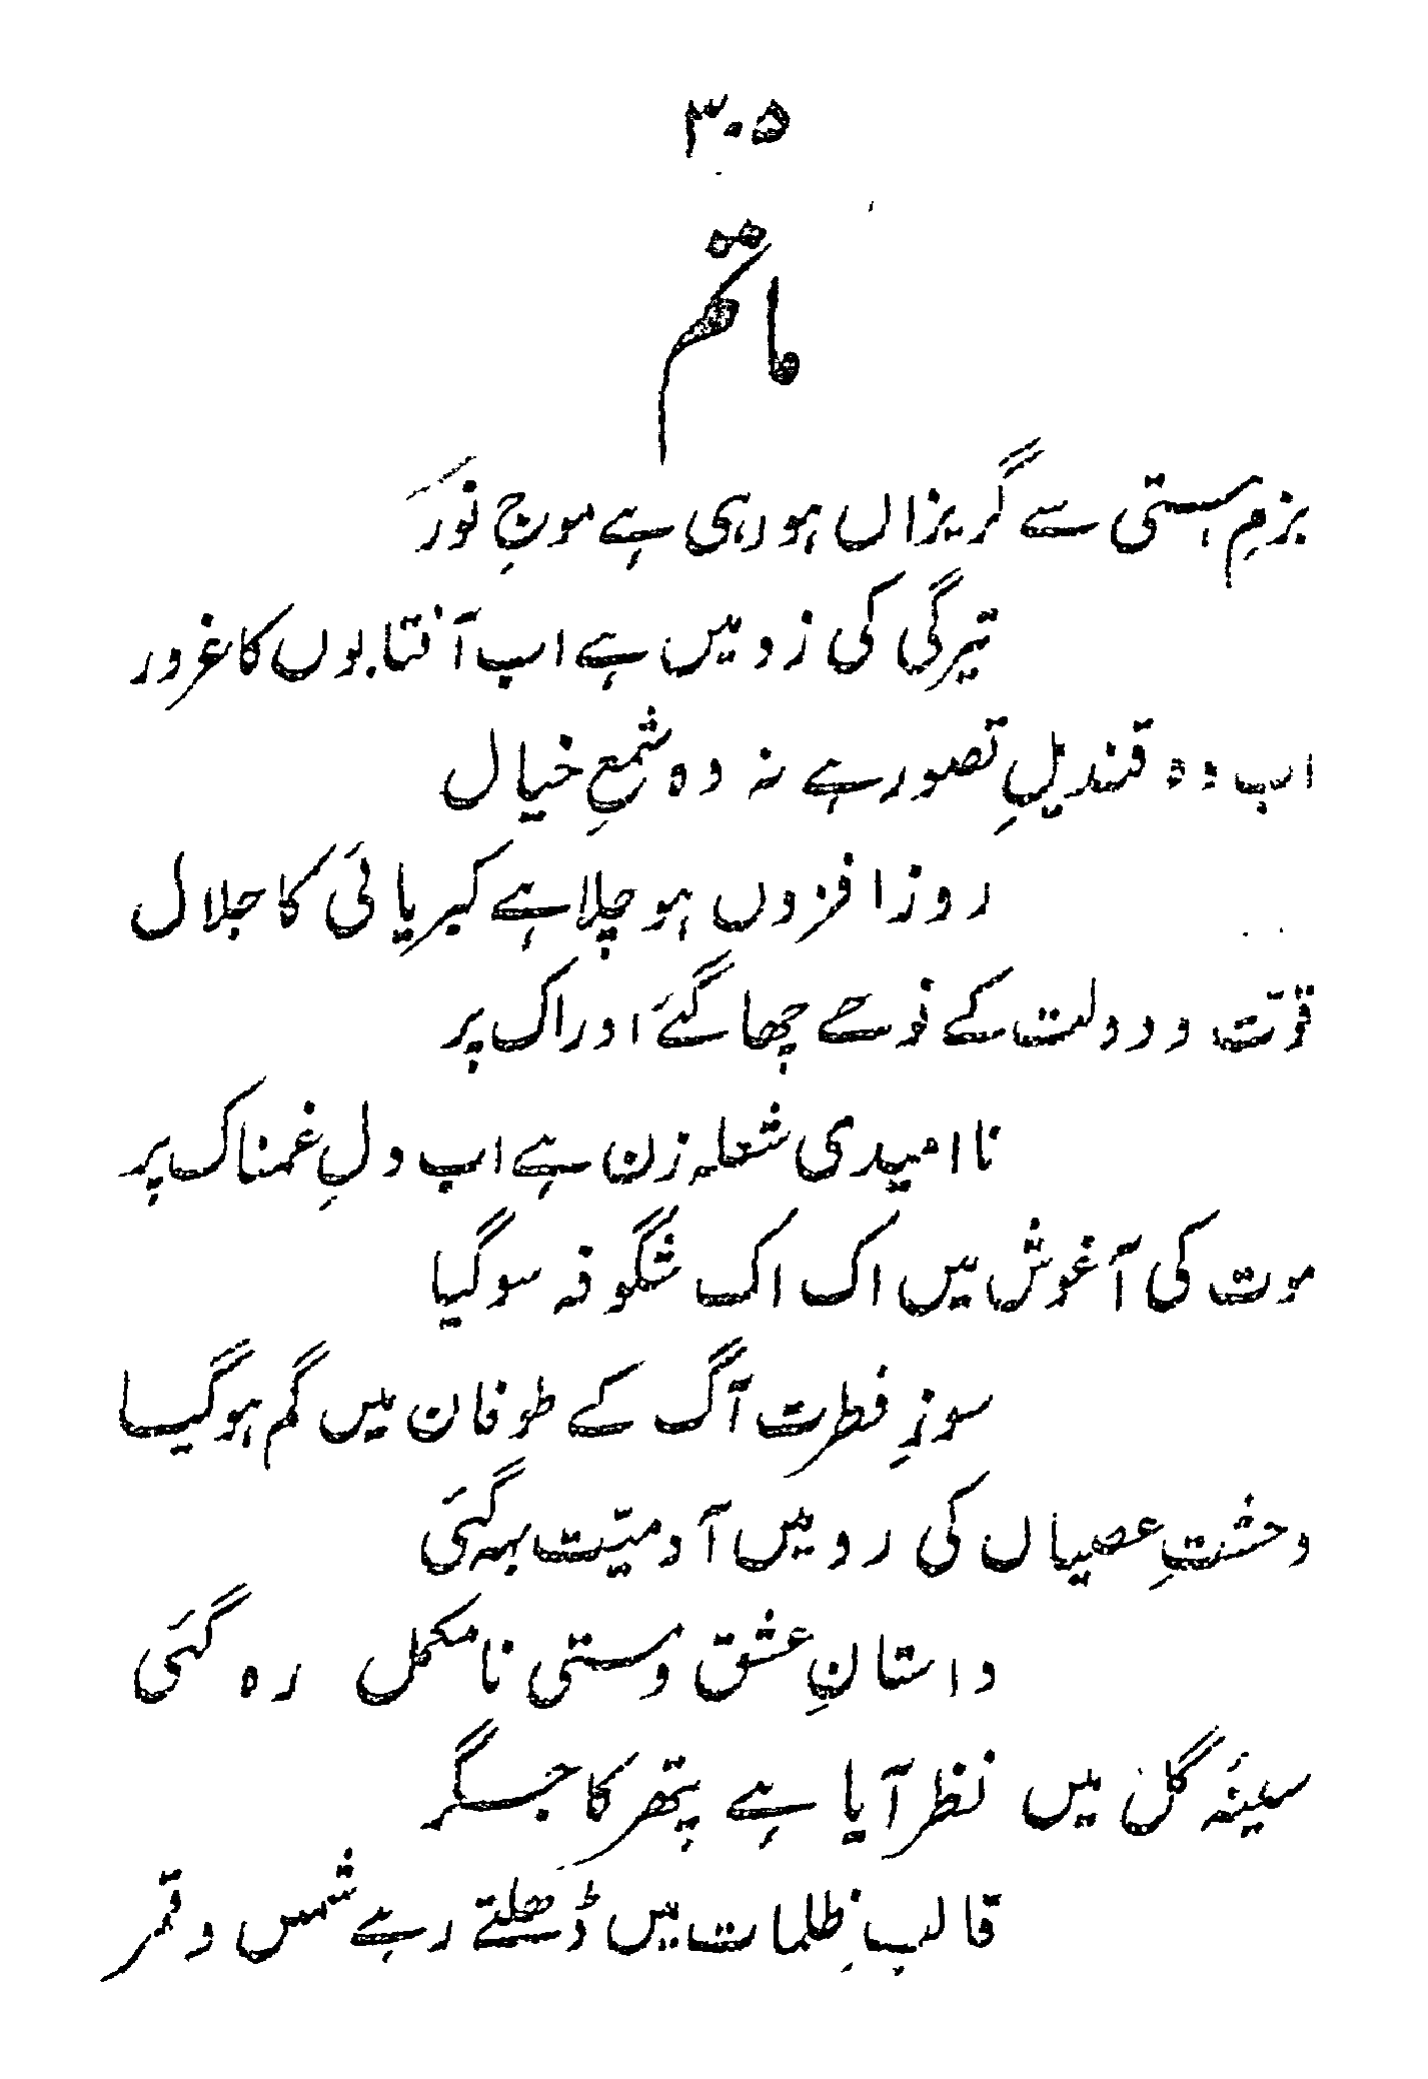 ۳۰۵
ماتم
بزمِ ہستی سے گریزاں ہو رہی ہے موجِ نور
تیرگی کی زد میں ہے اب آفتابوں کا غرور
اب وہ قندیلِ تصور ہے نہ وہ شمعِ خیال
روز افزوں ہو چلا ہے کبریائی کا جلال
قوّت و دولت کے نوحے چھا گئے ادراک پر
نا امیدی شعلہ زن ہے اب دلِ غمناک پر
موت کی آغوش میں اک اک شگوفہ سو گیا
سوزِ فطرت آگ کے طوفان میں گم ہو گیا
وحشتِ عصیاں کی رو میں آدمیّت بہہ گئی
داستانِ عشق و مستی نامکمل رہ گئی
سینۂ گل میں نظر آیا ہے پتھر کا جگر
قالبِ ظلمات میں ڈھلتے رہے شمس و قمر